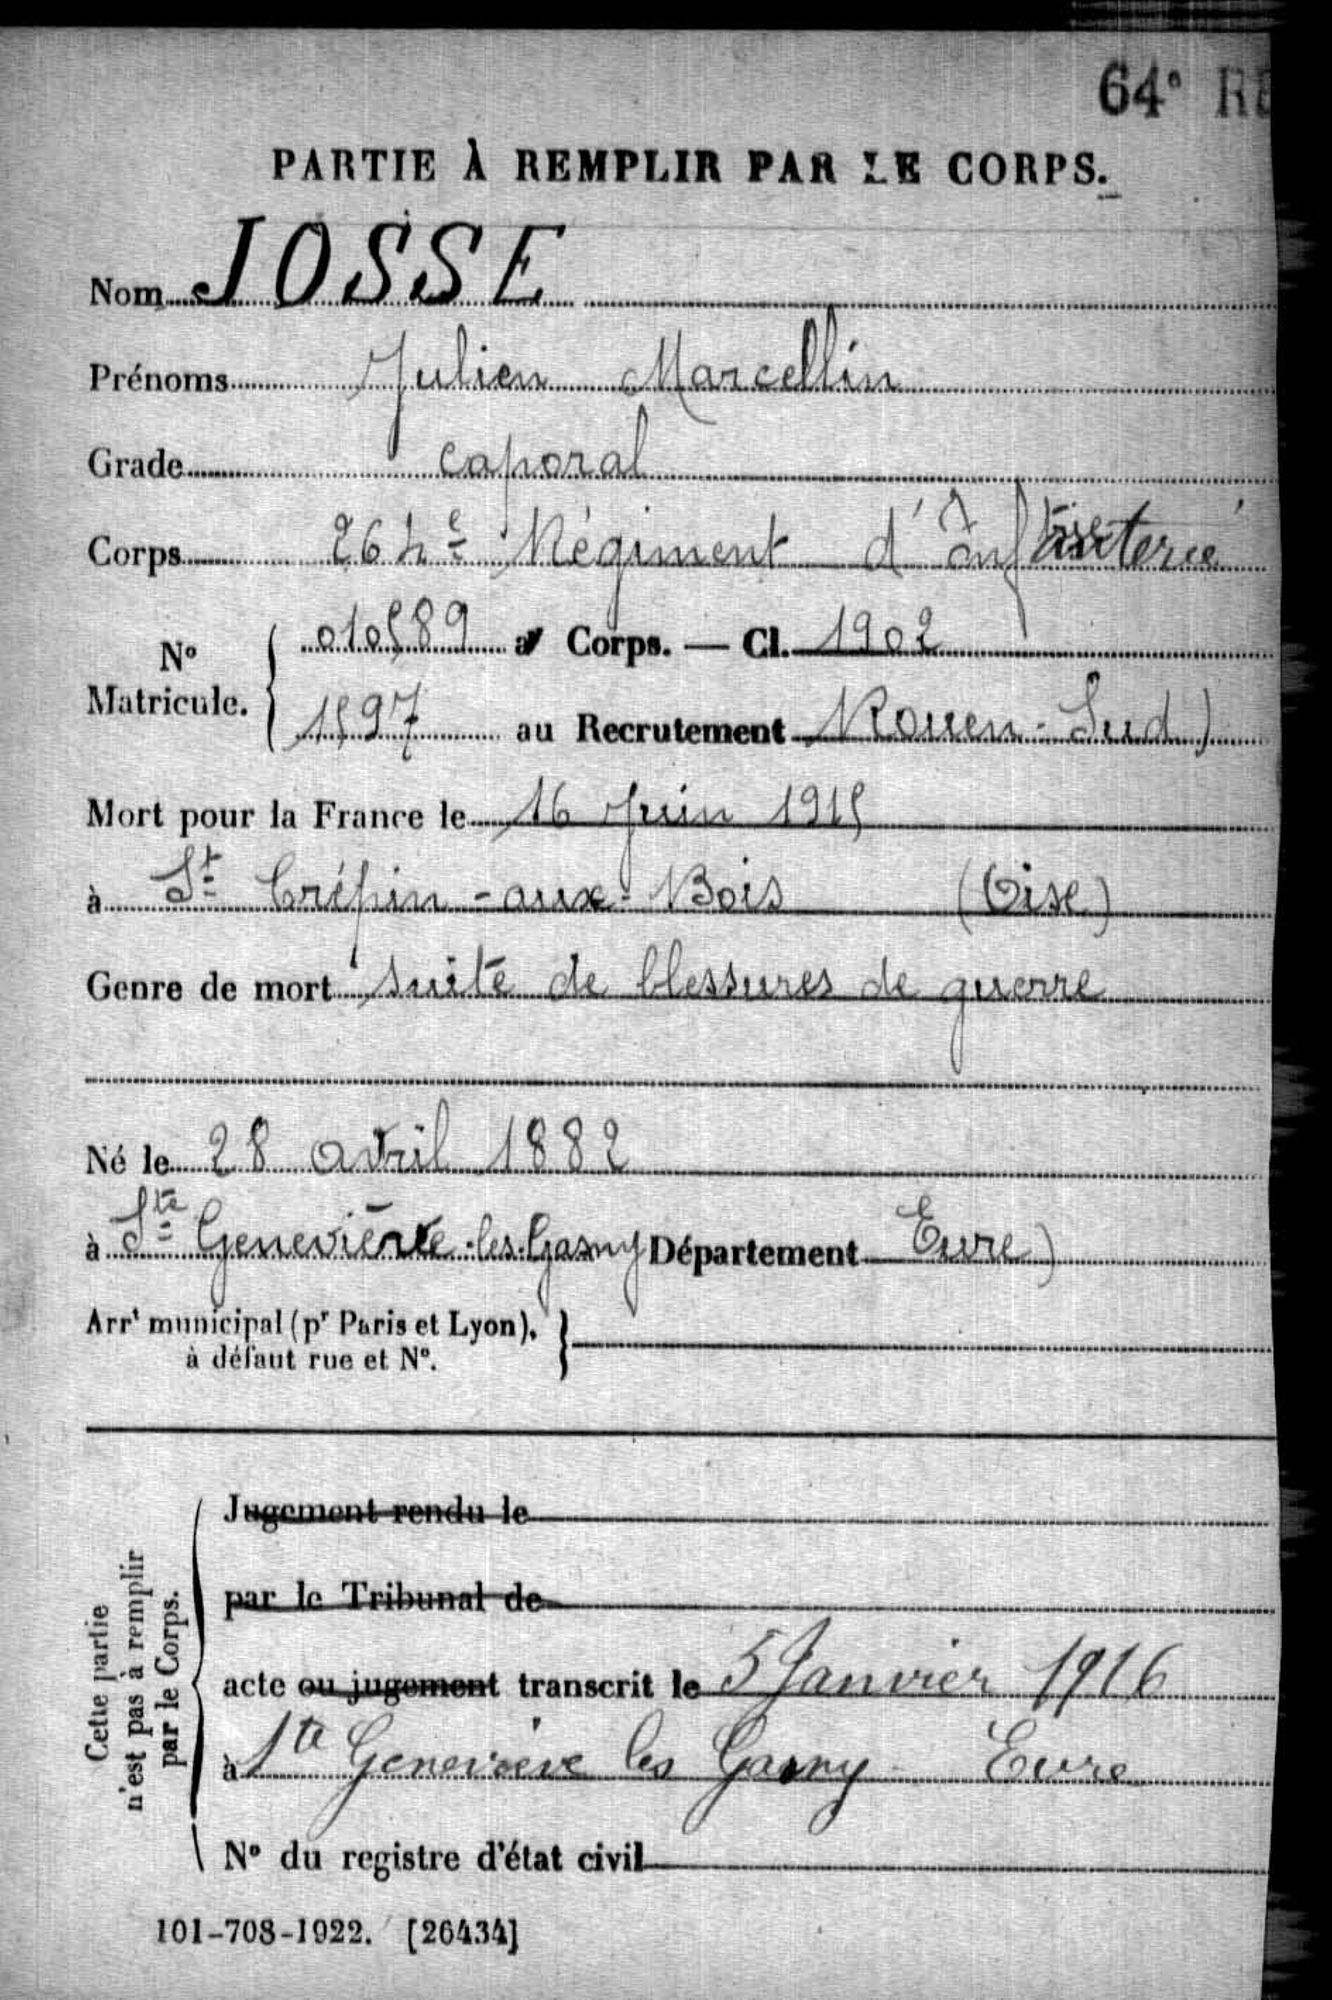 64e RE
PARTIE À REMPLIR PAR LE CORPS.
Nom JOSSE
Prénoms Julien Marcellin
Grade caporal
Corps 264e Régiment d'Infanterie
No Matricule. 010589 au Corps. — Cl. 1902
1597 au Recrutement Rouen-Sud)
Mort pour la France le 16 Juin 1915
à St Crépin-aux-Bois (Oise)
Genre de mort suite de blessures de guerre
Né le 28 avril 1882
à Ste Geneviève-les-Gasny Département Eure)
Arrt municipal (pr Paris et Lyon),
à défaut rue et No.
Cette partie
n'est pas à remplir
par le Corps.
Jugement rendu le
par le Tribunal de
acte ou jugement transcrit le 5 Janvier 1916
à Ste Geneviève les Gasny Eure
No du registre d'état civil
101-708-1922. [26434]